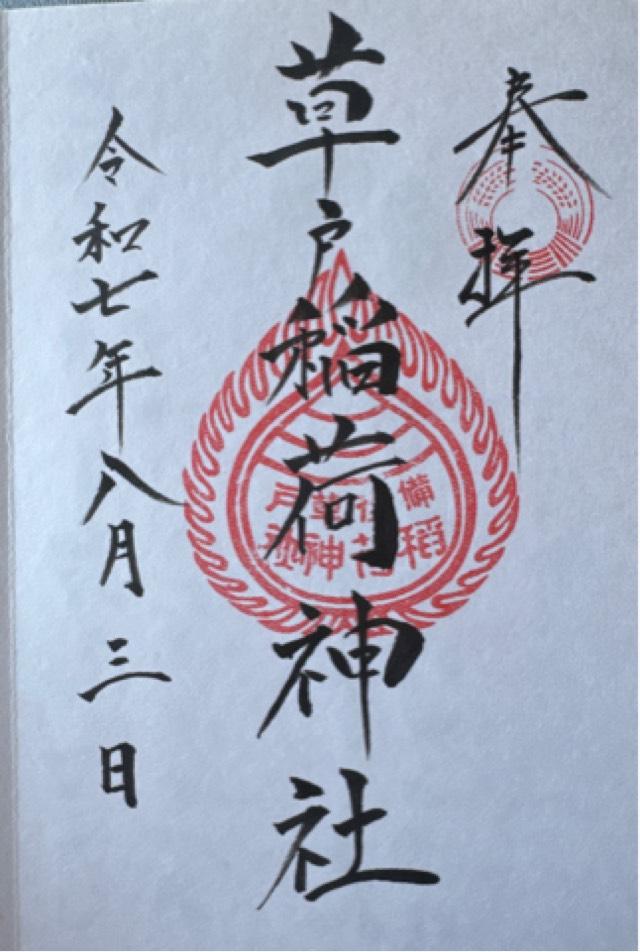 奉拝
草戸稲荷神社
備後草戸
稻荷神社
令和七年八月三日